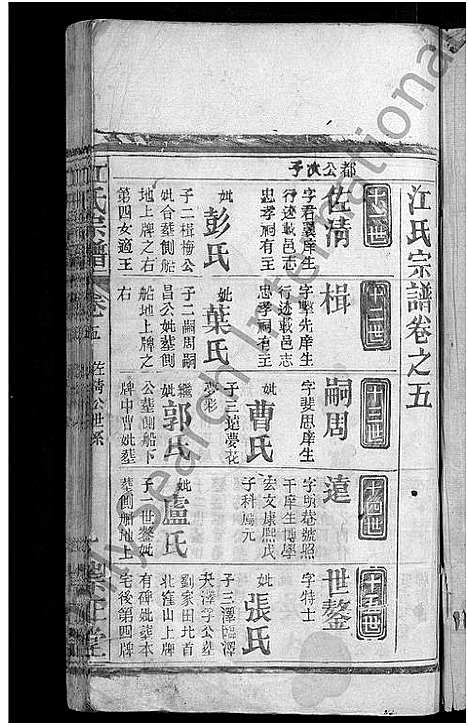 江氏宗譜卷之五
都公次子
十一世
佐清
字君襄庠生
行述載邑志
忠孝祠有主
妣
彭氏
子二楫梅公
妣合塟側船
地上牌之右
第四女適王
十二世
楫
字擊先庠生
行述載邑志
忠孝祠有主
妣
葉氏
子二嗣周嗣
昌公妣塟側
船地上牌之
右
十三世
嗣周
字斐思庠生
妣
曹氏
子三遠夢花
夢彩
繼
郭氏
公塟側船下
牌中曹妣塟
十四世
遠
字明巷號照
千庠生博學
宏文康熙戊
子科屬元
妣
盧氏
子一世鏊妣
塟側船地上
十五世
世鏊
字特士
妣
張氏
子三澤臨澤
澤孚公塟
劉家田北首
北窪山上牌
有碑妣塟本
宅後第四牌
江氏宗譜
卷五
佐清公世系
Mysearch International